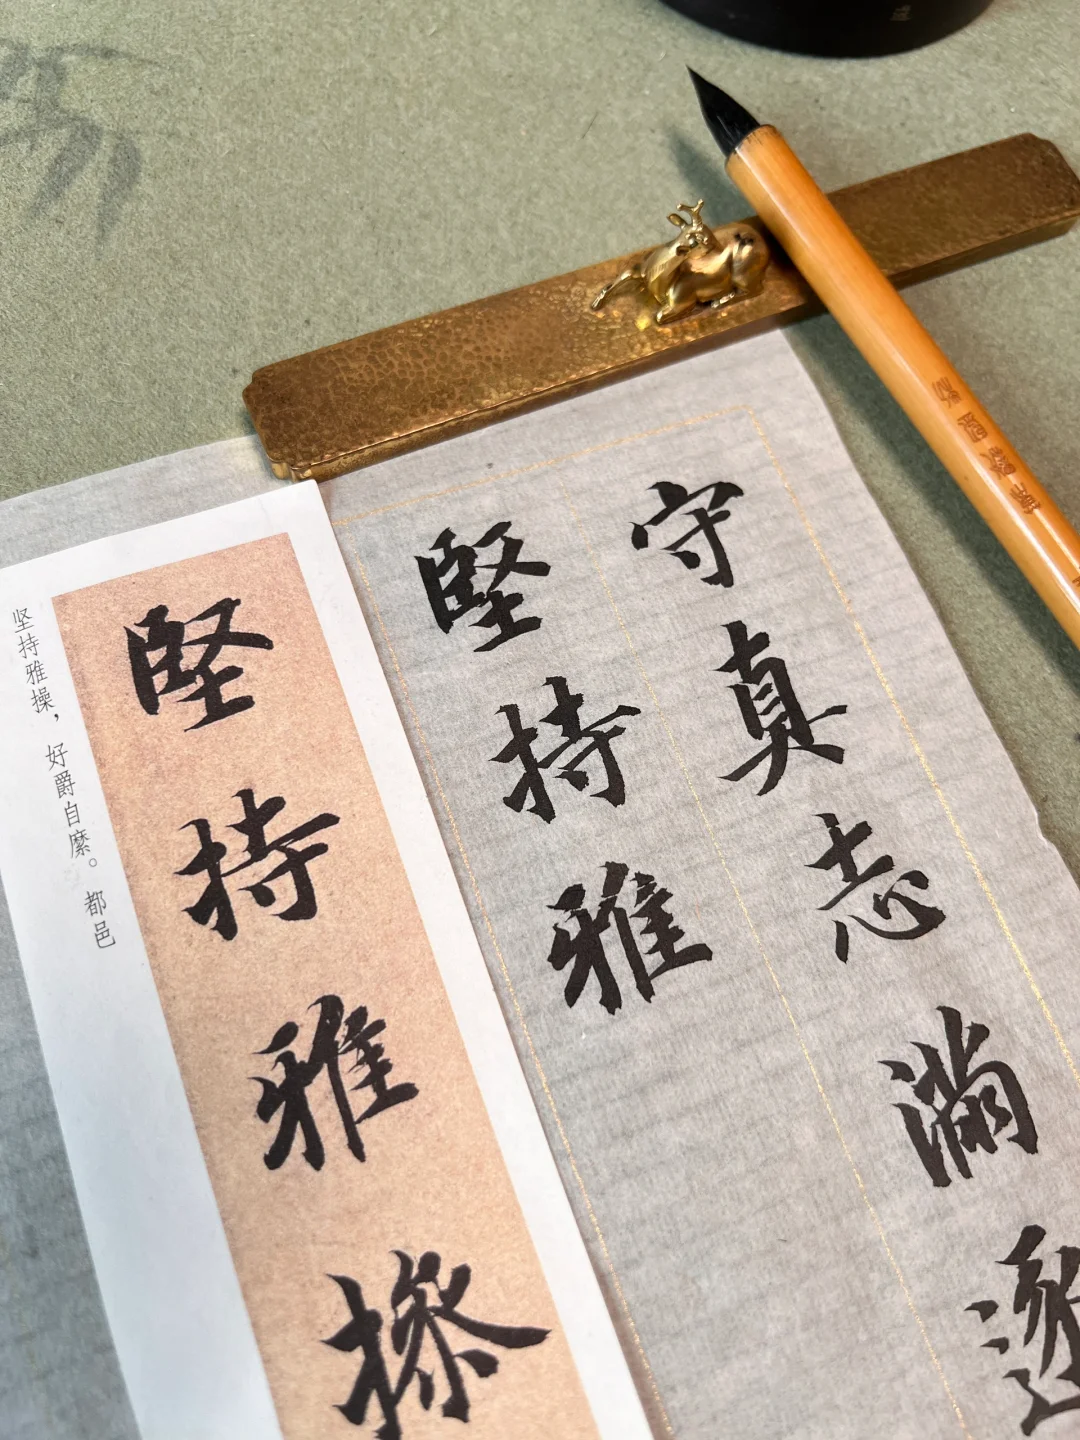 守真志滿逐
堅持雅
堅持雅操
坚持雅操，好爵自縻。都邑